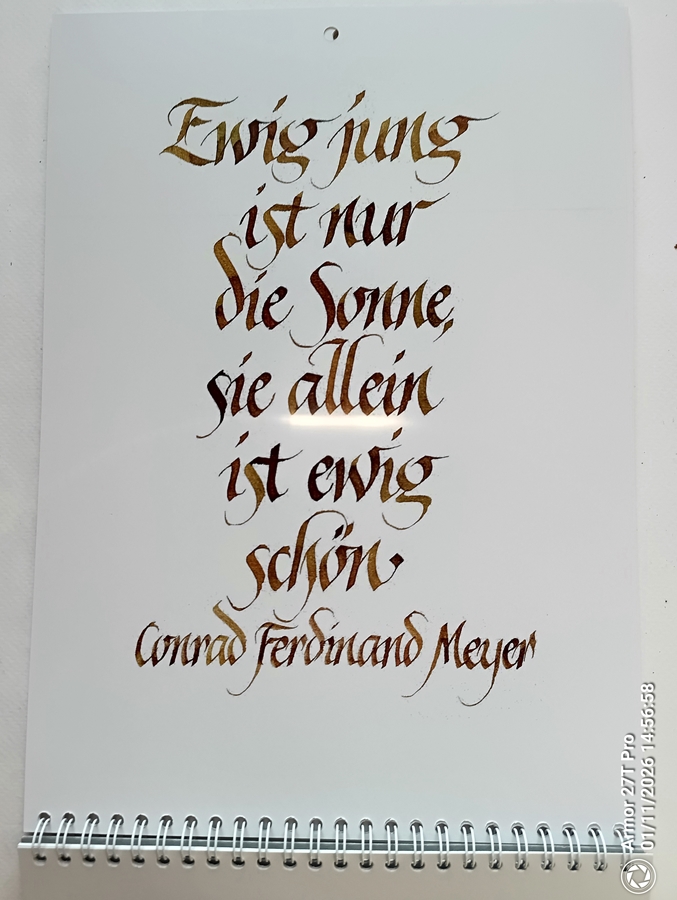 Ewig jung
ist nur
die Sonne,
sie allein
ist ewig
schön.
Conrad Ferdinand Meyer
Armor 27T Pro
01/11/2026 14:56:58